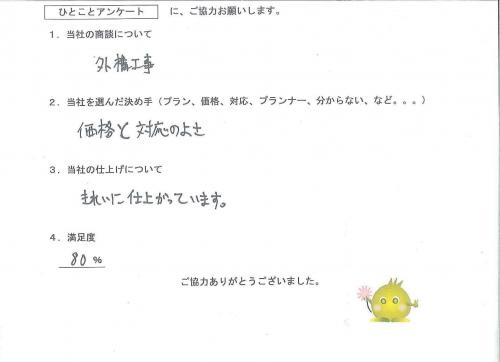 ひとことアンケート に、ご協力お願いします。
1．当社の商談について
外構工事
2．当社を選んだ決め手（プラン、価格、対応、プランナー、分からない、など。。。）
価格と対応のよさ
3．当社の仕上げについて
きれいに仕上がっています。
4．満足度
80 %
ご協力ありがとうございました。